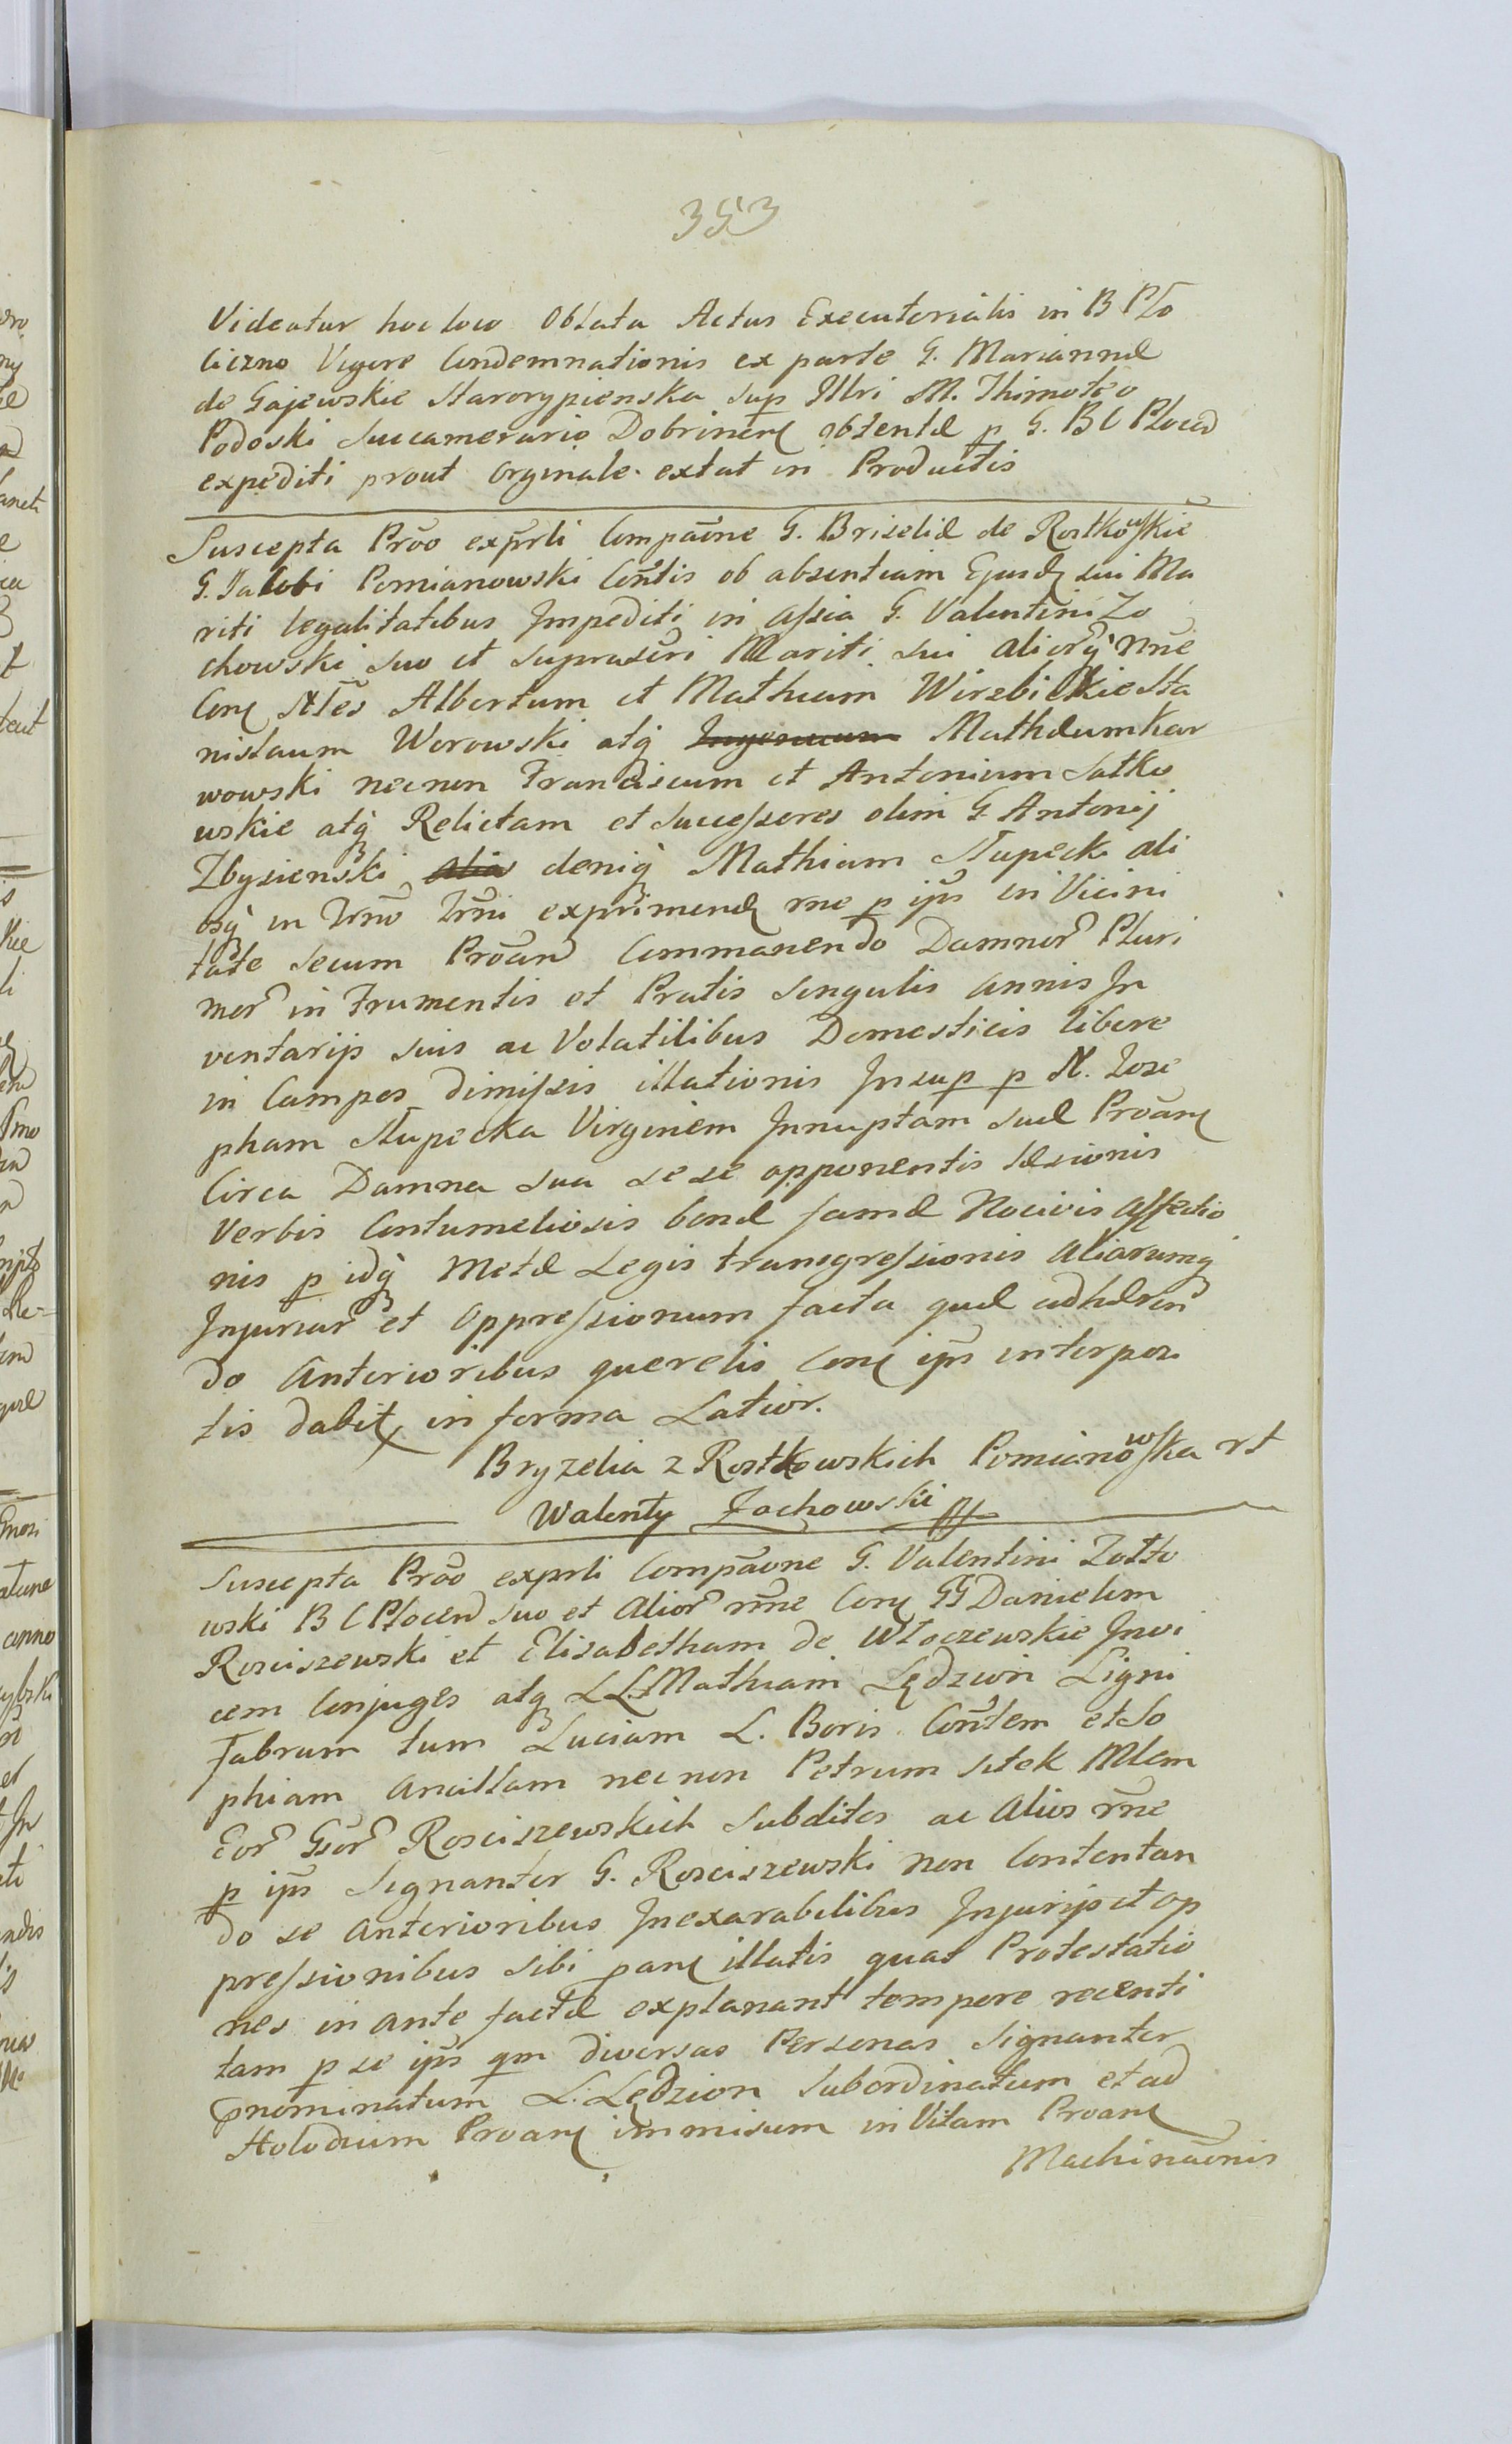 353
Videatur hoc loco Oblata Actus Executorialis in B Pło
ciczno Vigore Condemnationis ex parte G. Mariannæ
de Gajewskie Starorypienska sup Illri M. Thimoteo
Podoski Succamerario Dobrinen obtentæ p G. B C Plocen
expediti prout orginale extat in Productis
Suscepta Prõo exprli Compaõne G. Brizeliæ de Rostkowskie
G. Jacobi Pomianowski Cõntis ob absentiam Ejusd sui Ma
riti legalitatibus Impediti in assia G. Valentini Zo
chowski suo et suprascri Mariti sui aliorq nne
Con Nles Albertum et Mathiam Wirzbickie Sta
nislaum Worowski atq Mathæum Kar
wowski necnon Franciscum et Antonium Sutko
wskie atq Relictam et Successores olim G Antonij
Zbyzienski alia deniq Mathiam Słupecki ali
osq in Trno Trni exprimend rne p ips in Vicini
tate secum Proan Commanendo Damnor Pluri
mor in Frumentis et Pratis singulis annis In
ventarijs suis ac Volatilibus Domesticis libere
in Campos dimissis illationis Insup p N. Jose
pham Słupecka Virginem Innuptam suæ Proan
Circa Damna sua sese opponentis læsionis
Verbis Contumeliosis bonæ famæ Nocivis affectio
nis p idq Metæ Legis transgressionis aliarumq
Injuriar et Oppressionum facta quæ adhæren
do Anterioribus querelis Con ips interpozi
tis dabit in forma Latior.
Bryzelia z Rostkowskich Pomianowska rt
Walenty Zochowski
Suscepta Prõo exprli Compaõne G. Valentini Zołto
wski B C Plocen suo et Alior nne Con GG Danielem
Rosciszewski et Elisabetham de Włoczewskie Invi
cem Conjuges atq LL Mathiam Lędzion Ligni
Fabrum tum Luciam L. Boris Cõntem et So
phiam ancillam necnon Petrum Sitek Mlem
Eor Gsor Rosciszewskich Subditos ac Alios rne
p ips Signanter G. Rosciszewski non Contentan
do se anterioribus Inexarabilibus Injurijs et op
pressionibus sibi pan illatis quas Protestatio
nes in ante factæ explanant tempore recenti
tam p se ips qm diversas Personas Signanter
pnominatum L. Lędzion Subordinatum et ad
Holodium Proan immisum in Vitam Proan
Machinaõnis